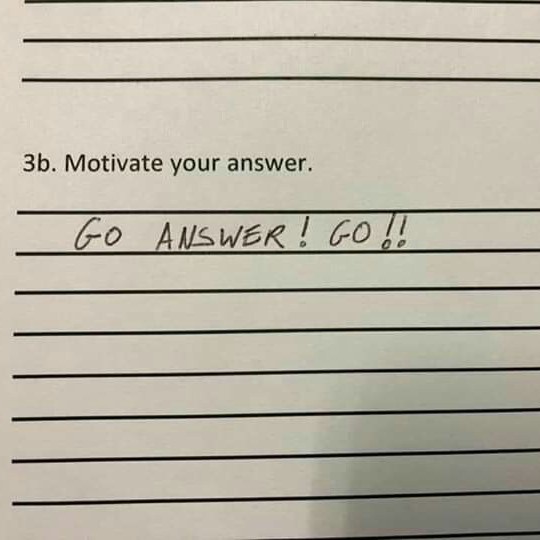 3b. Motivate your answer.
GO ANSWER! GO!!